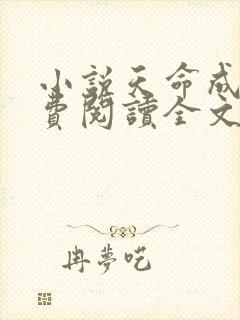 小說天命成
費閱讀全文
冉夢呓